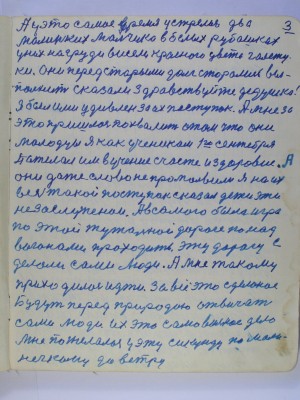 3
А у это самое время устрелъ два
маленьких мальчика в белых рубашках
у них на груди висел красного цвета галсту-
ки. Они перед старыми долг старались вы-
полнить сказали Здравствуйте дедушка!
Я был ими удивлен за их поступок. А мне за
это пришлось похвалить о том что они
молодцы Я как ученикам 1го сентября
пожелал им в учение счастье и здоровие. А
они дате слово не промолвили Я на их
такой поступок сказал дети эти
не заслужено. А в самого была игра
по этой дороге по над
вогонами проходить эту дорогу с-
делали сами люди. А мне такому
приходилось идти. За всё это сделаное
Будут перед природою отвичат
сами люди их это само вичное дело
Мне пожелалось у эту секунду по мале-
нечкому да ветру